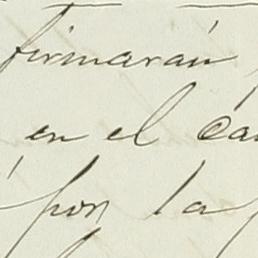 firmarán
en el
por la